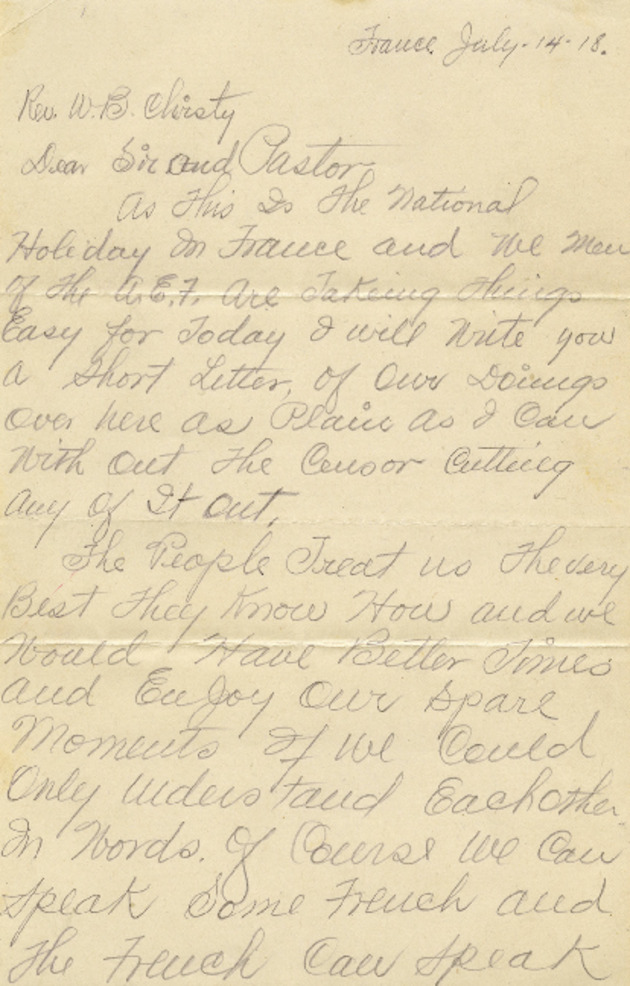 France July-14-18.
Rev. W.B. Christy
Dear Sir and Pastor
As This Is The National
Holiday In France and We Men
of The A.E.F. Are Takeing Things
Easy for Today I will Write you
a Short Letter, of Our Doings
over here as Plain As I Can
With Out The Censor Cutting
any Of It Out.
The People Treat us The very
Best They Know How and we
Would Have Better Times
and EnJoy Our Spare
Moments If We Could
Only Understand Eachother
In Words. Of Course We Can
Speak Some French and
The French Can Speak